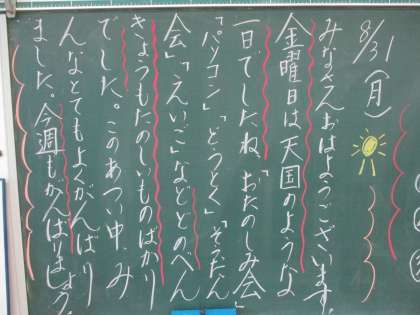 8/31(月)
みなさんおはようございます。
金曜日は天国のような
一日でしたね。おたのしみ会
「パソコン」「どうとく」「そうだん
会」「えいご」などどのべん
きょうもたのしいものばかり
でした。このあつい中、み
んなとてもよくがんばり
ました。今週もがんばりましょう。